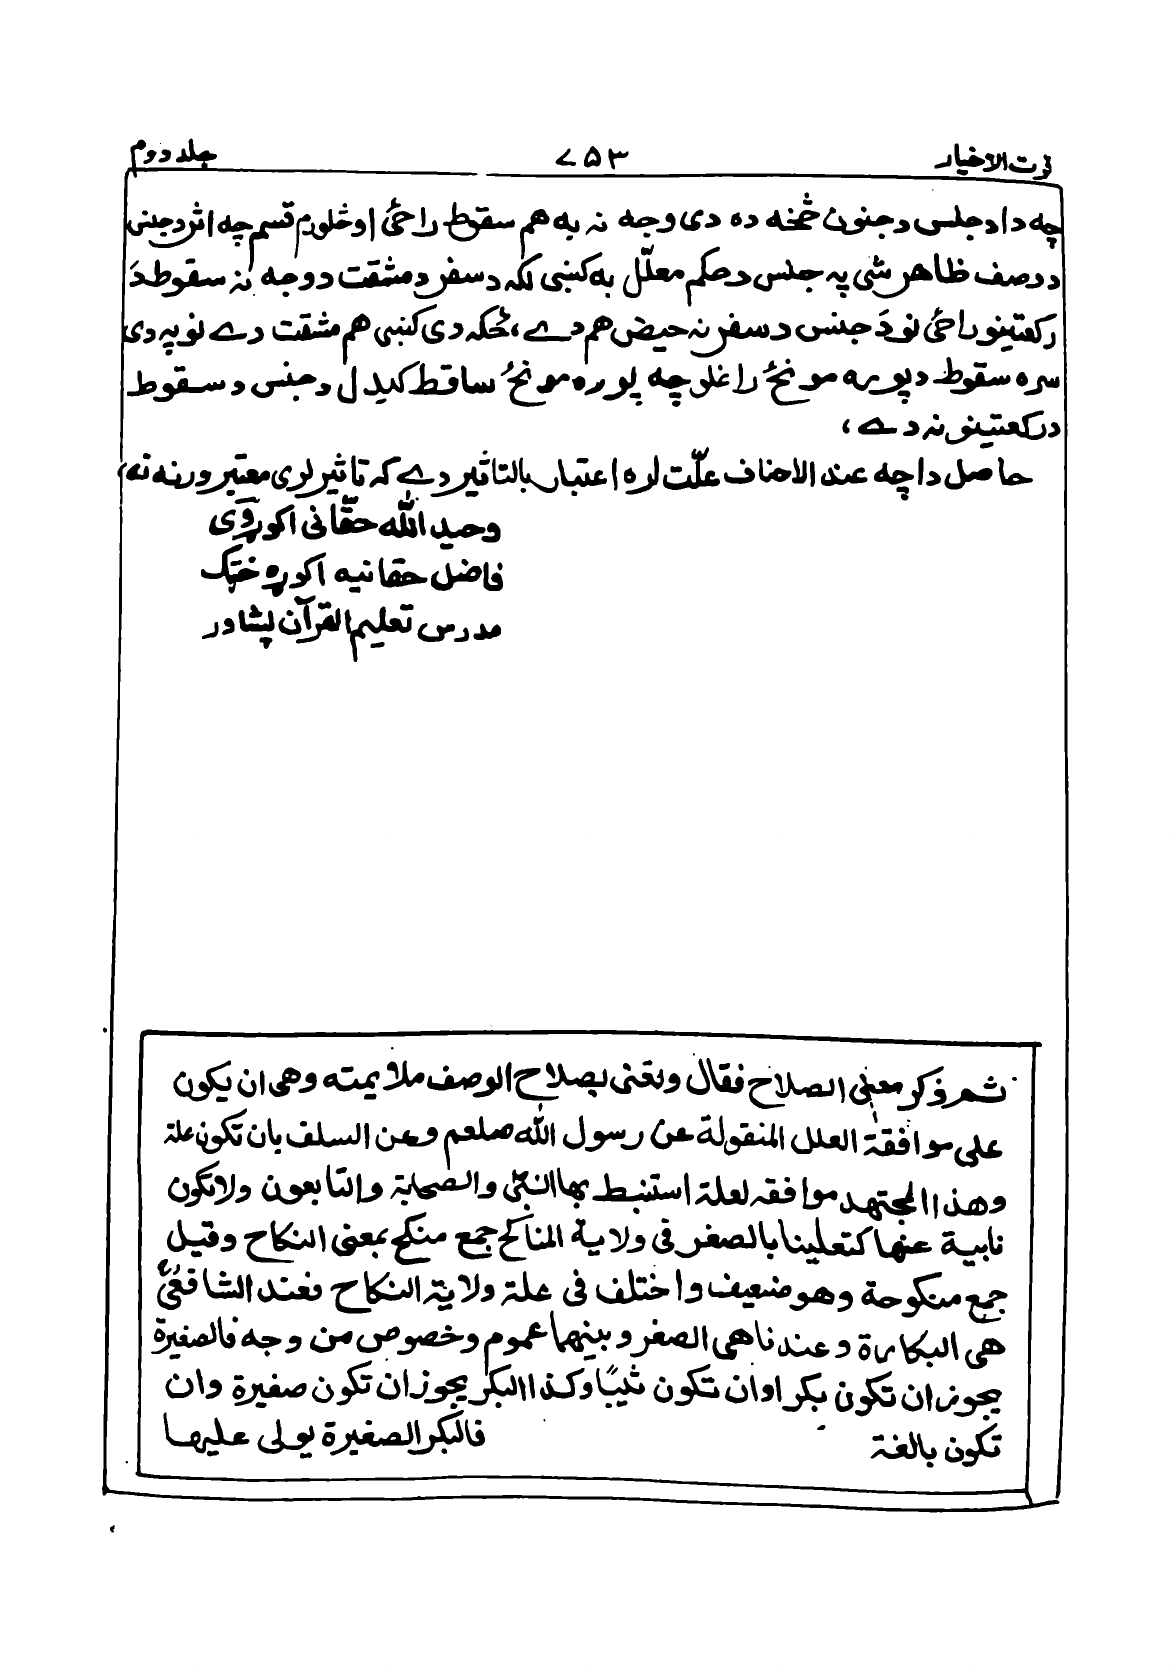 قرت الاخیار ۷۵۳ جلد دوم
چه دا د جلس د جنون څخه ده دی وجه نه به هم سقوط راځی او څلورم قسم چه اثر د جنس
د وصف ظاهر شی په جنس د حکم معلّل به کښی لکه د سفر د مشقت د وجه نه سقوط دَ
رکعتینو راځی نو دَ جنس د سفر نه حیض هم دے، ځکه دی کښی هم مشقت دے نو په دی
سره سقوط د پوره مونځ راغلی چه پوره مونځ ساقط کیدل د جنس د سقوط
د رکعتینو نه دے،
حاصل دا چه عند الاحناف علّت لره اعتبار بالتاثیر دے که تاثیر لری معتبر ورنه نه،
وحید الله حقّانی اکوړوی
فاضل حقانیه اکوړه خټک
مدرس تعلیم القرآن پشاور
ثم ذکر معنی الصلاح فقال و نعنی بصلاح الوصف ملایمته وهی ان یکون
علی موافقة العلل المنقولة عن رسول الله صلعم وعن السلف بان تکون علة
وهذا المجتهد موافقه لعلة استنبط بها النبیّ والصحابة والتابعون ولا تکون
نابیة عنها کتعلینا بالصغر فی ولایة المناکح جمع منکح بمعنی النکاح وقیل
جمع منکوحة وهو ضعیف واختلف فی علة ولایة النکاح فعند الشافعیؒ
هی البکارة وعندنا هی الصغر وبینهما عموم وخصوص من وجه فالصغیرة
یجوز ان تکون بکرا وان تکون ثیبًا وکذا البکر یجوز ان تکون صغیرة وان
تکون بالغة فالبکر الصغیرة یولی علیها